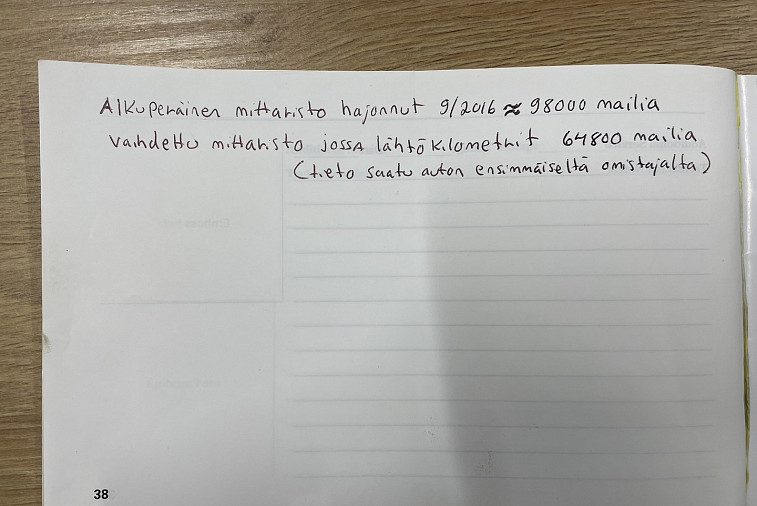 Alkuperäinen mittaristo hajonnut 9/2016 ≈ 98000 mailia
vaihdettu mittaristo jossa lähtö kilometrit 64800 mailia
(tieto saatu auton ensimmäiseltä omistajalta)
38